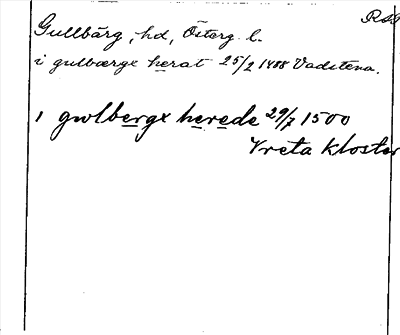 RAP
Gullbärg, hd, Österg. l.
i gulbærgx herat 25/2 1488 Vadstena.
i gwlbergx herede 29/7 1500
Vreta kloster